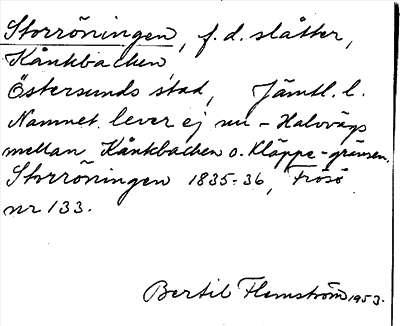 Storröningen, f.d. slåtter,
Kånkbacken
Östersunds stad, Jämtl. l.
Namnet lever ej nu - Halvvägs
mellan Kånkbacken o. Kläppe-gränsen.
Storröningen 1835-36, Frösö
nr 133.
Bertil Flemström 1953.